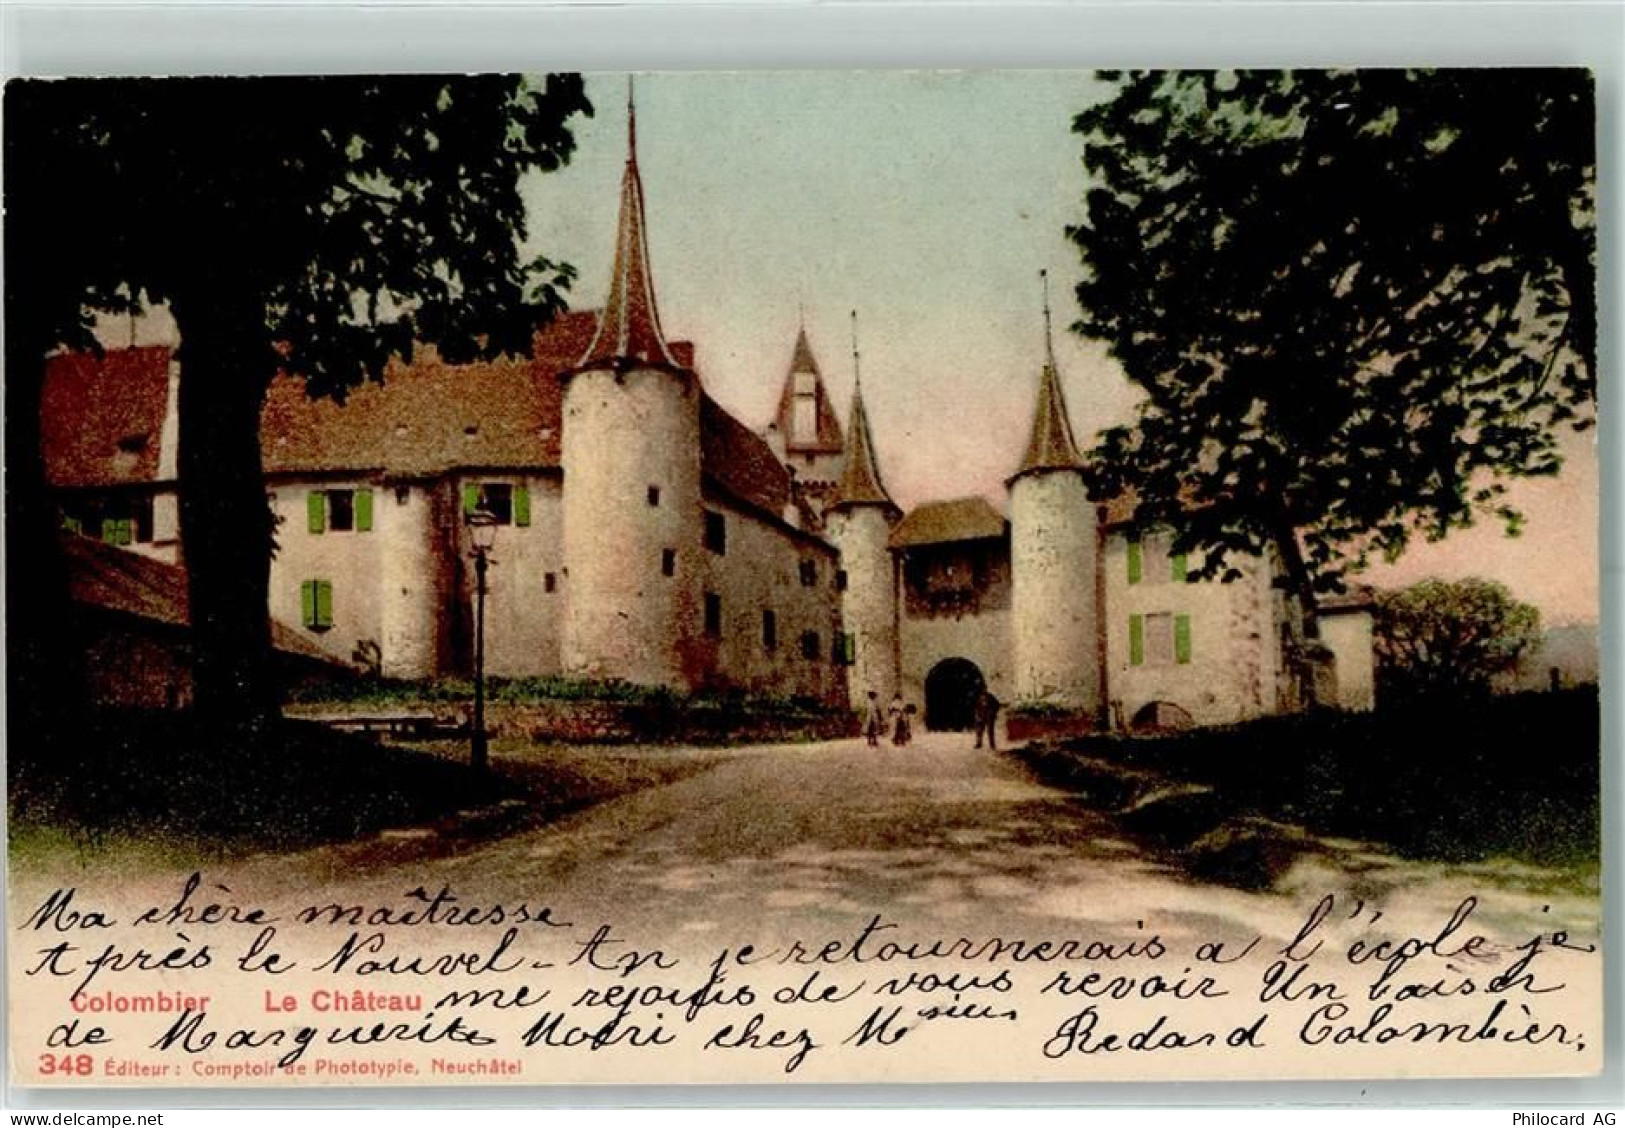 Ma chère maîtresse
Après le Nouvel-An je retournerais a l'école je
Colombier Le Château
me rejouis de vous revoir Un baiser
de Marguerite chez Msieur Redard Colombier.
348 Éditeur: Comptoir de Phototypie, Neuchâtel
www.delcampe.net
Philocard AG